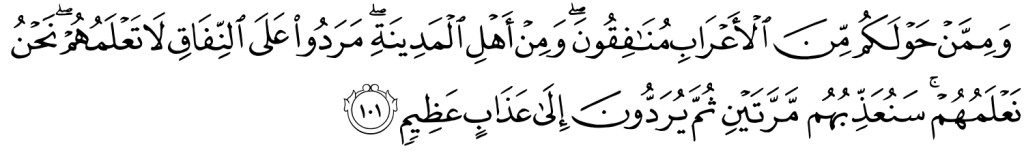 وَمِمَّنْ حَوْلَكُم مِّنَ ٱلْأَعْرَابِ مُنَٰفِقُونَۖ وَمِنْ أَهْلِ ٱلْمَدِينَةِۖ مَرَدُوا۟ عَلَى ٱلنِّفَاقِ لَا تَعْلَمُهُمْۖ نَحْنُ
نَعْلَمُهُمْۚ سَنُعَذِّبُهُم مَّرَّتَيْنِ ثُمَّ يُرَدُّونَ إِلَىٰ عَذَابٍ عَظِيمٍ ١٠١